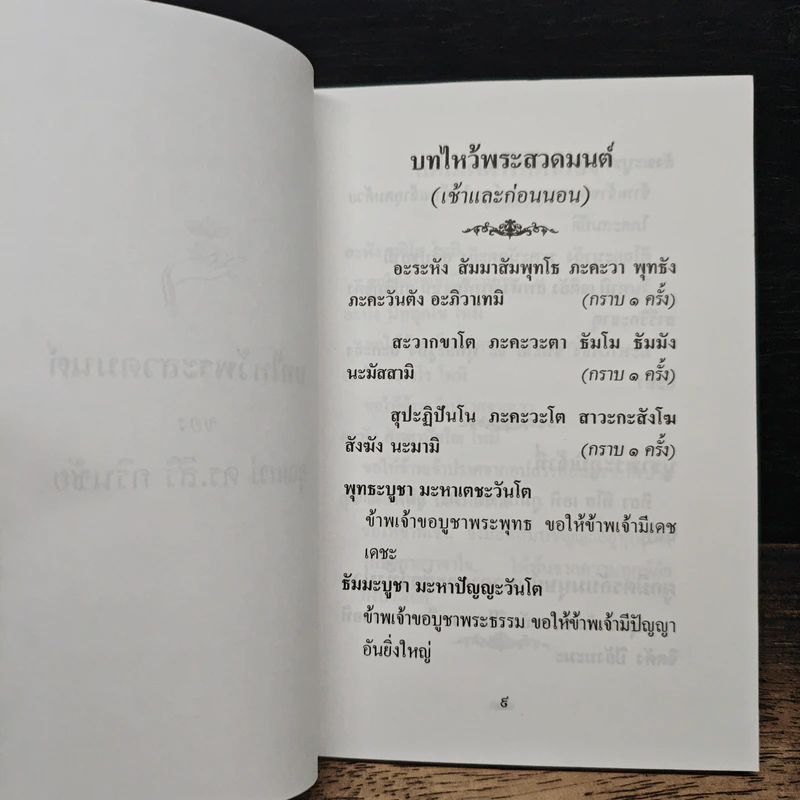 บทไหว้พระสวดมนต์
(เช้าและก่อนนอน)
อะระหัง สัมมาสัมพุทโธ ภะคะวา พุทธัง
ภะคะวันตัง อะภิวาเทมิ (กราบ ๑ ครั้ง)
สะวากขาโต ภะคะวะตา ธัมโม ธัมมัง
นะมัสสามิ (กราบ ๑ ครั้ง)
สุปะฏิปันโน ภะคะวะโต สาวะกะสังโฆ
สังฆัง นะมามิ (กราบ ๑ ครั้ง)
พุทธะบูชา มะหาเตชะวันโต
ข้าพเจ้าขอบูชาพระพุทธ ขอให้ข้าพเจ้ามีเดช
เดชะ
ธัมมะบูชา มะหาปัญญะวันโต
ข้าพเจ้าขอบูชาพระธรรม ขอให้ข้าพเจ้ามีปัญญา
อันยิ่งใหญ่
๙